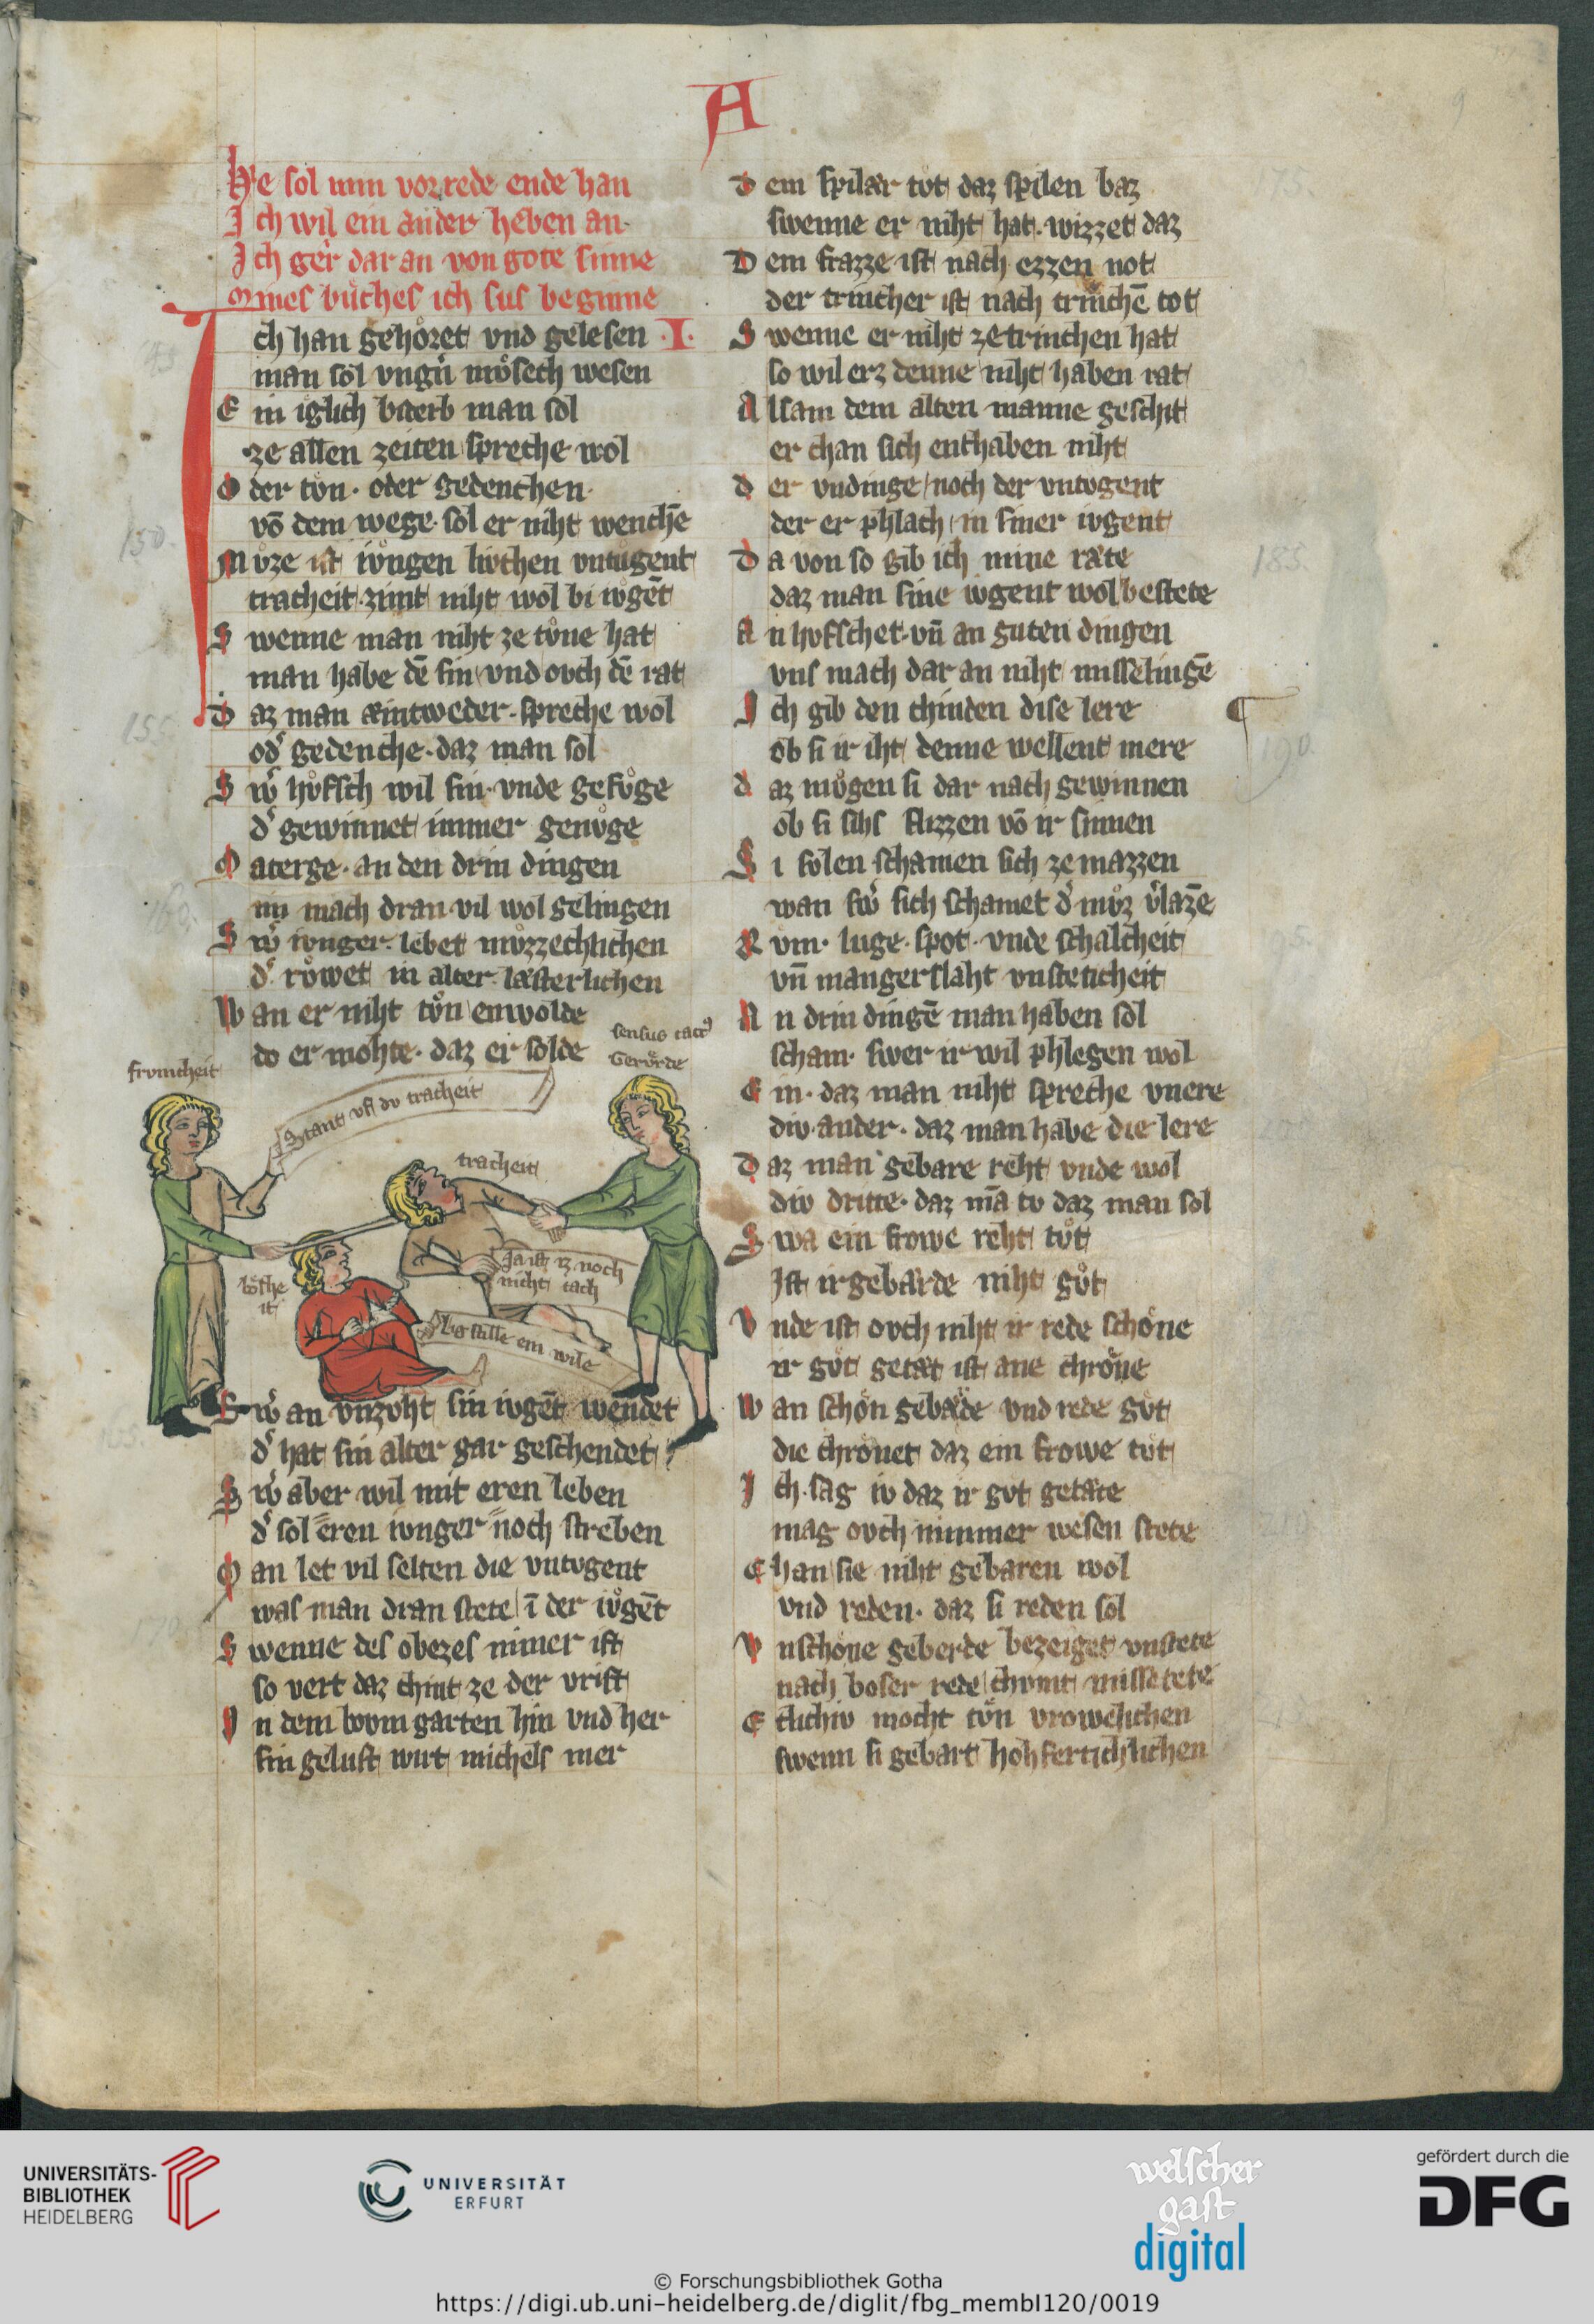 A
9
Hie sol min vorrede ende han
Ich wil ein ander heben an.
Ich ger dar an von gote sinne
mines bůches ich sus beginne
Ich han gehoͤret vnd gelesen ·I·
man sol vngern mvͦsech wesen
Ein iglich bderb man sol
ze allen zeiten spreche wol
Oder tvͦn. oder gedenchen.
vō dem wege sol er niht wenchē
Mvͦze ist ivͦngen livthen vntugent
tracheit zimt niht wol bi ivgēt
Swenne man niht ze tvͦne hat
man habe dē sin vnd ovch dē rat
Daz man æintweder. spreche wol
od͛ gedenche. daz man sol
Sw͛ hvͦfsch wil sin. vnde gefvͦge
d͛ gewinnet immer genvͦge
Materge. an den drin dingen
im mach dran vil wol gelingen
Sw͛ ivnger. lebet mvͦzzechlichen
d͛ rvͦwet in alter. læsterlichen
Wan er niht tvͦn enwolde
do er mohte. daz er solde
sensus
Geværde
frvmcheit
Stant vf dv tracheit
tracheit
Ja ist iz noch
nicht tach
boͤshe
it
Lig stille ein wile
Sw͛ an vnzvht sin ivgēt wendet
d͛ hat sin alter gar geschendet
Sw͛ aber wil mit eren leben
d͛ sol eren ivnger noch streben
Man let vil selten die vntvgent
was man dran stete ī der ivgēt
Swenne des obezes nimer ist
so vert daz chint ze der vrist
In dem bovmgarten hin vnd her
sin gelust wirt michels mer
Dem spilær tvt daz spilen baz
swenne er niht hat. wizzet daz
Dem frazze ist nach ezzen not
der trincher ist nach trinchē tot
Swenne er niht ze trinchen hat
so wil erz denne niht haben rat
Alsam dem alten manne geschit
er chan sich enthaben niht
der vndinge noch der vntvgent
der er phlach in siner ivgent
Da von so gib ich mine ræte
daz man sine ivgent wol bestete
An hvfschet. vn̄ an guten dingen
vns mach dar an niht misselingē
Ich gib den chinden dise lere
ob si ir iht denne wellent mere
daz mvͦgen si dar nach gewinnen
ob si sihs flizzen vō ir sinnen
Si solen schamen sich ze mazzen
wan sw͛ sich schamet d͛ mvͦz v͛lazē
Rvm. luge. spot. vnde schalcheit
vn̄ mangerslaht vnsteticheit
An drin dingē man haben sol
scham. swer ir wil phlegen wol
Ein. daz man niht spreche vnere
div ander. daz man habe die lere
Daz man gebare reht vnde wol
div dritte. daz mā tv daz man sol
Swa ein frowe reht tvͦt
Ist ir gebærde niht gvͦt
Vnde ist ovch niht ir rede schoͤne
ir gvͦt getæt ist ane chroͤne
Wan schoͤn gebæde vnd rede gvt
die chroͤnet daz ein frowe tvͦt
Ich sag iv daz ir gvt getæte
mag ovch nimmer wesen stete
Chan sie niht gebaren wol
vnd reden. daz si reden sol
Vnschoͤne geberde bezeiget vnstete
nach boser rede chvmt missetete
Etlichiv mocht tvͦn vrowelichen
swenn si gebart hohfertichlichen
150.
155.
185.
190.
UNIVERSITÄTS-
BIBLIOTHEK
HEIDELBERG
UNIVERSITÄT
ERFURT
welscher
gast
digital
gefördert durch die
DFG
© Forschungsbibliothek Gotha
https://digi.ub.uni-heidelberg.de/diglit/fbg_membI120/0019